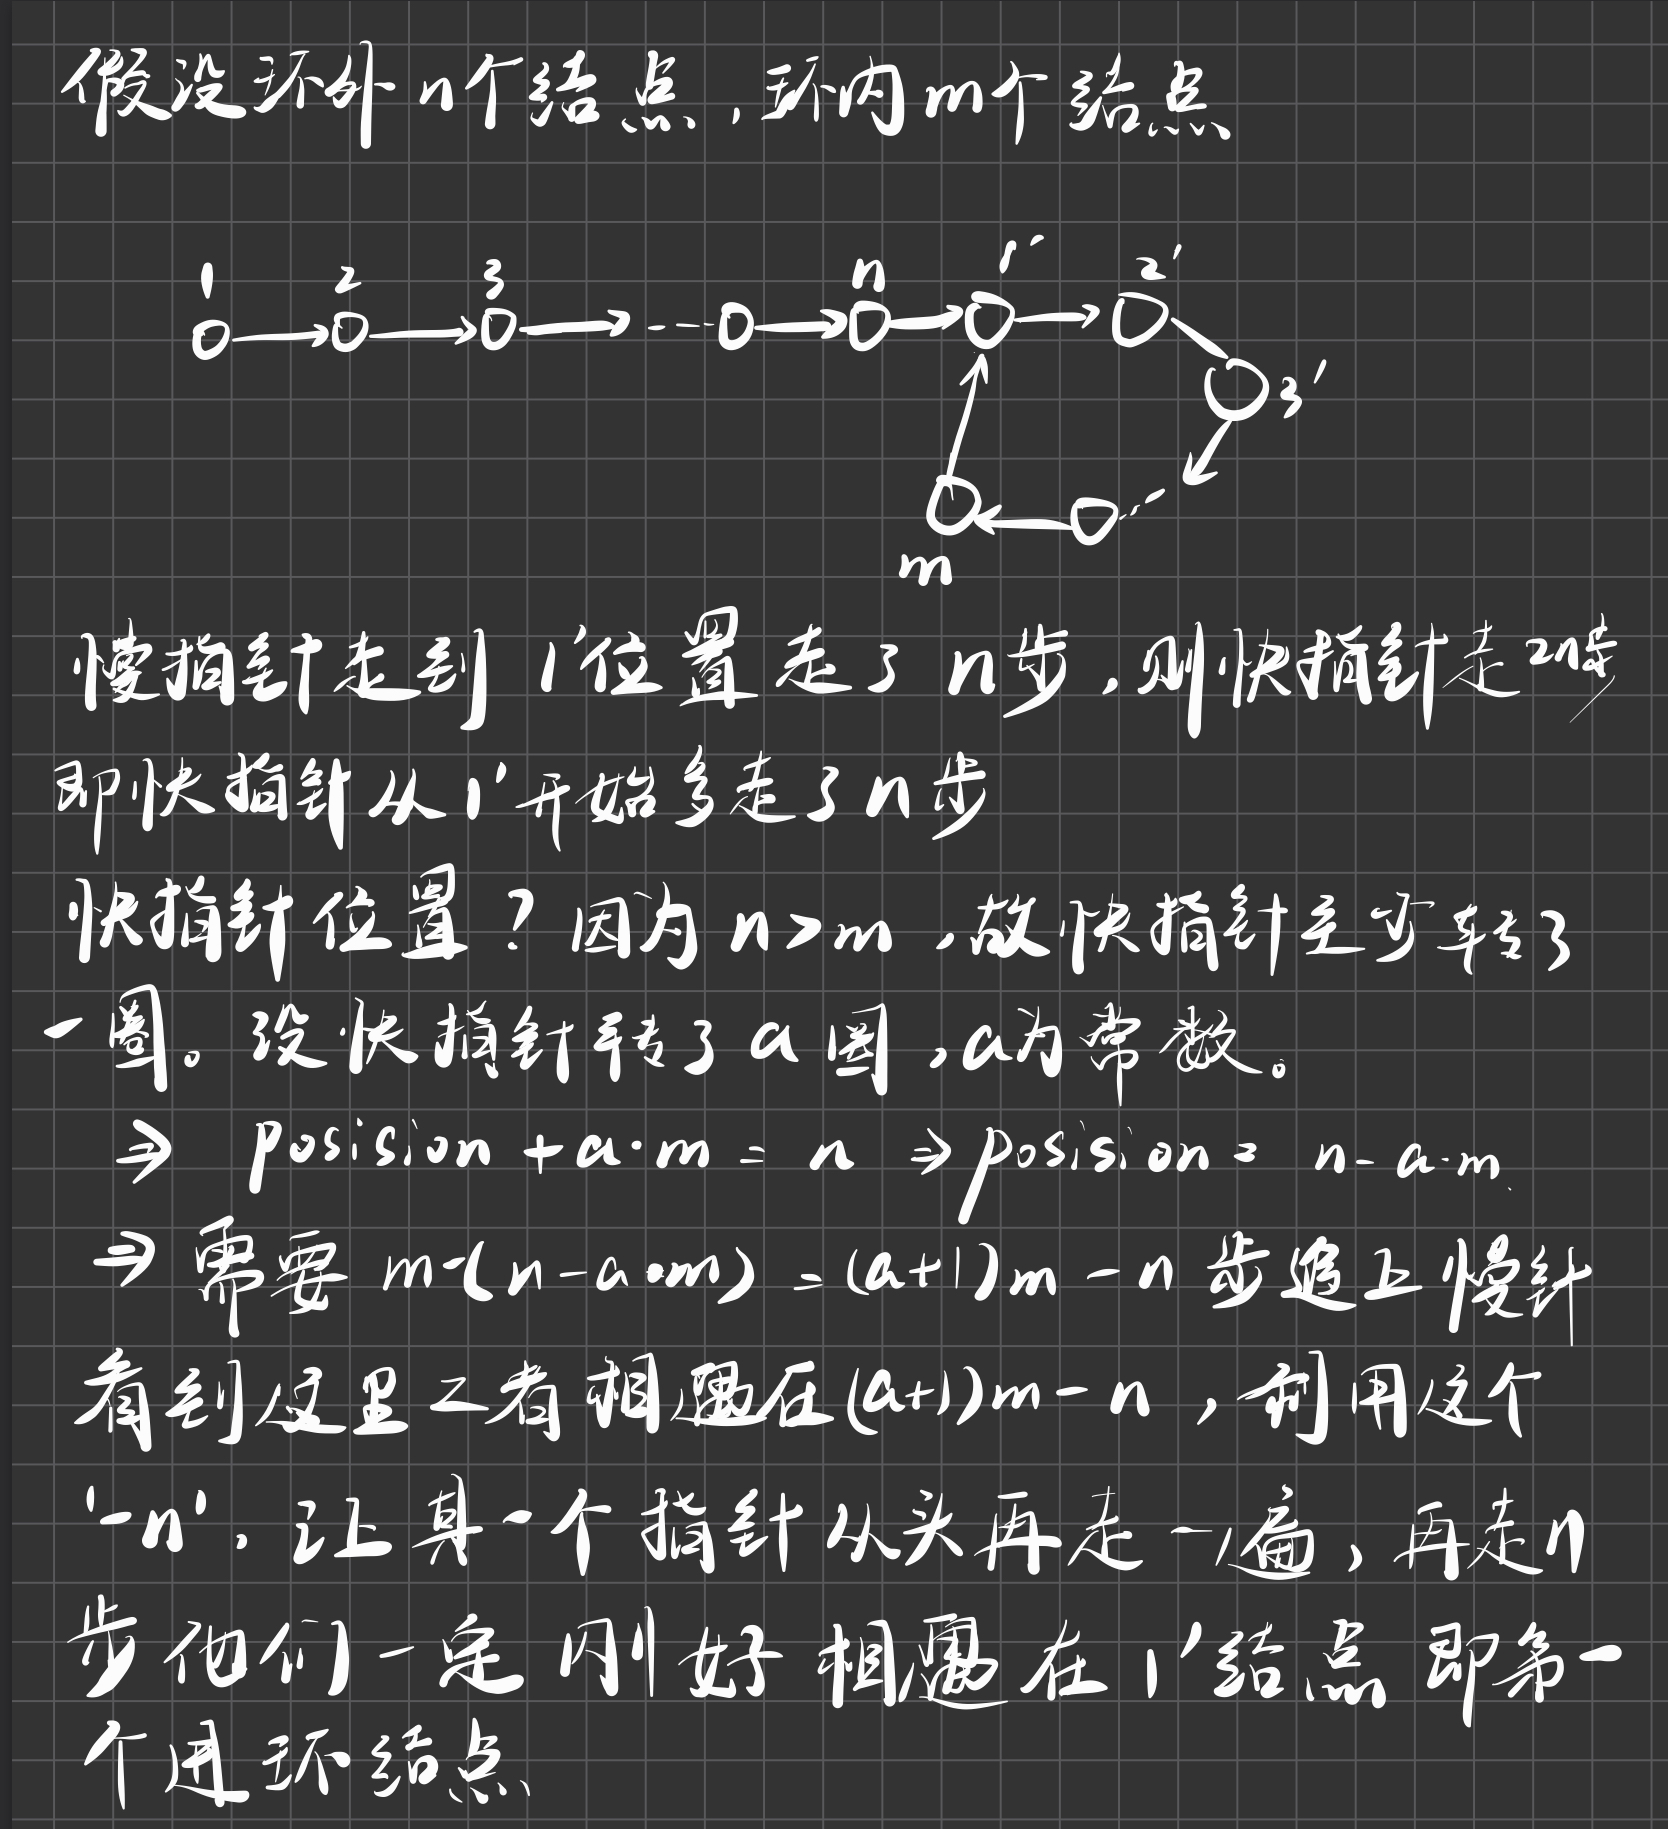 假设环外n个结点,环内m个结点
1 2 3 n 1' 2'
3'
m
慢指针走到1'位置走了n步,则快指针走2n步
即快指针从1'开始多走了n步
快指针位置?因为n>m,故快指针至少转了
一圈。设快指针转了a圈,a为常数。
⇒ posision+a·m=n ⇒posision= n-a·m
⇒需要 m-(n-a·m)=(a+1)m-n步追上慢针
看到这里二者相遇在(a+1)m-n,利用这个
'-n',让其一个指针从头再走一遍,再走n
步他们一定刚好相遇在1'结点即第一
个进环结点